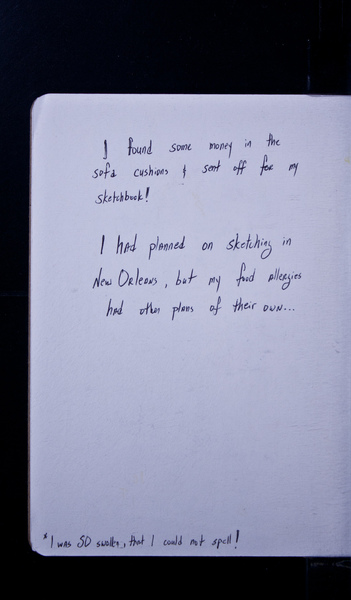 I found some money in the
sofa cushions & sent off for my
sketchbook!
I had planned on sketching in
New Orleans, but my food allergies
had other plans of their own...
*I was SO swollen, that I could not spell!